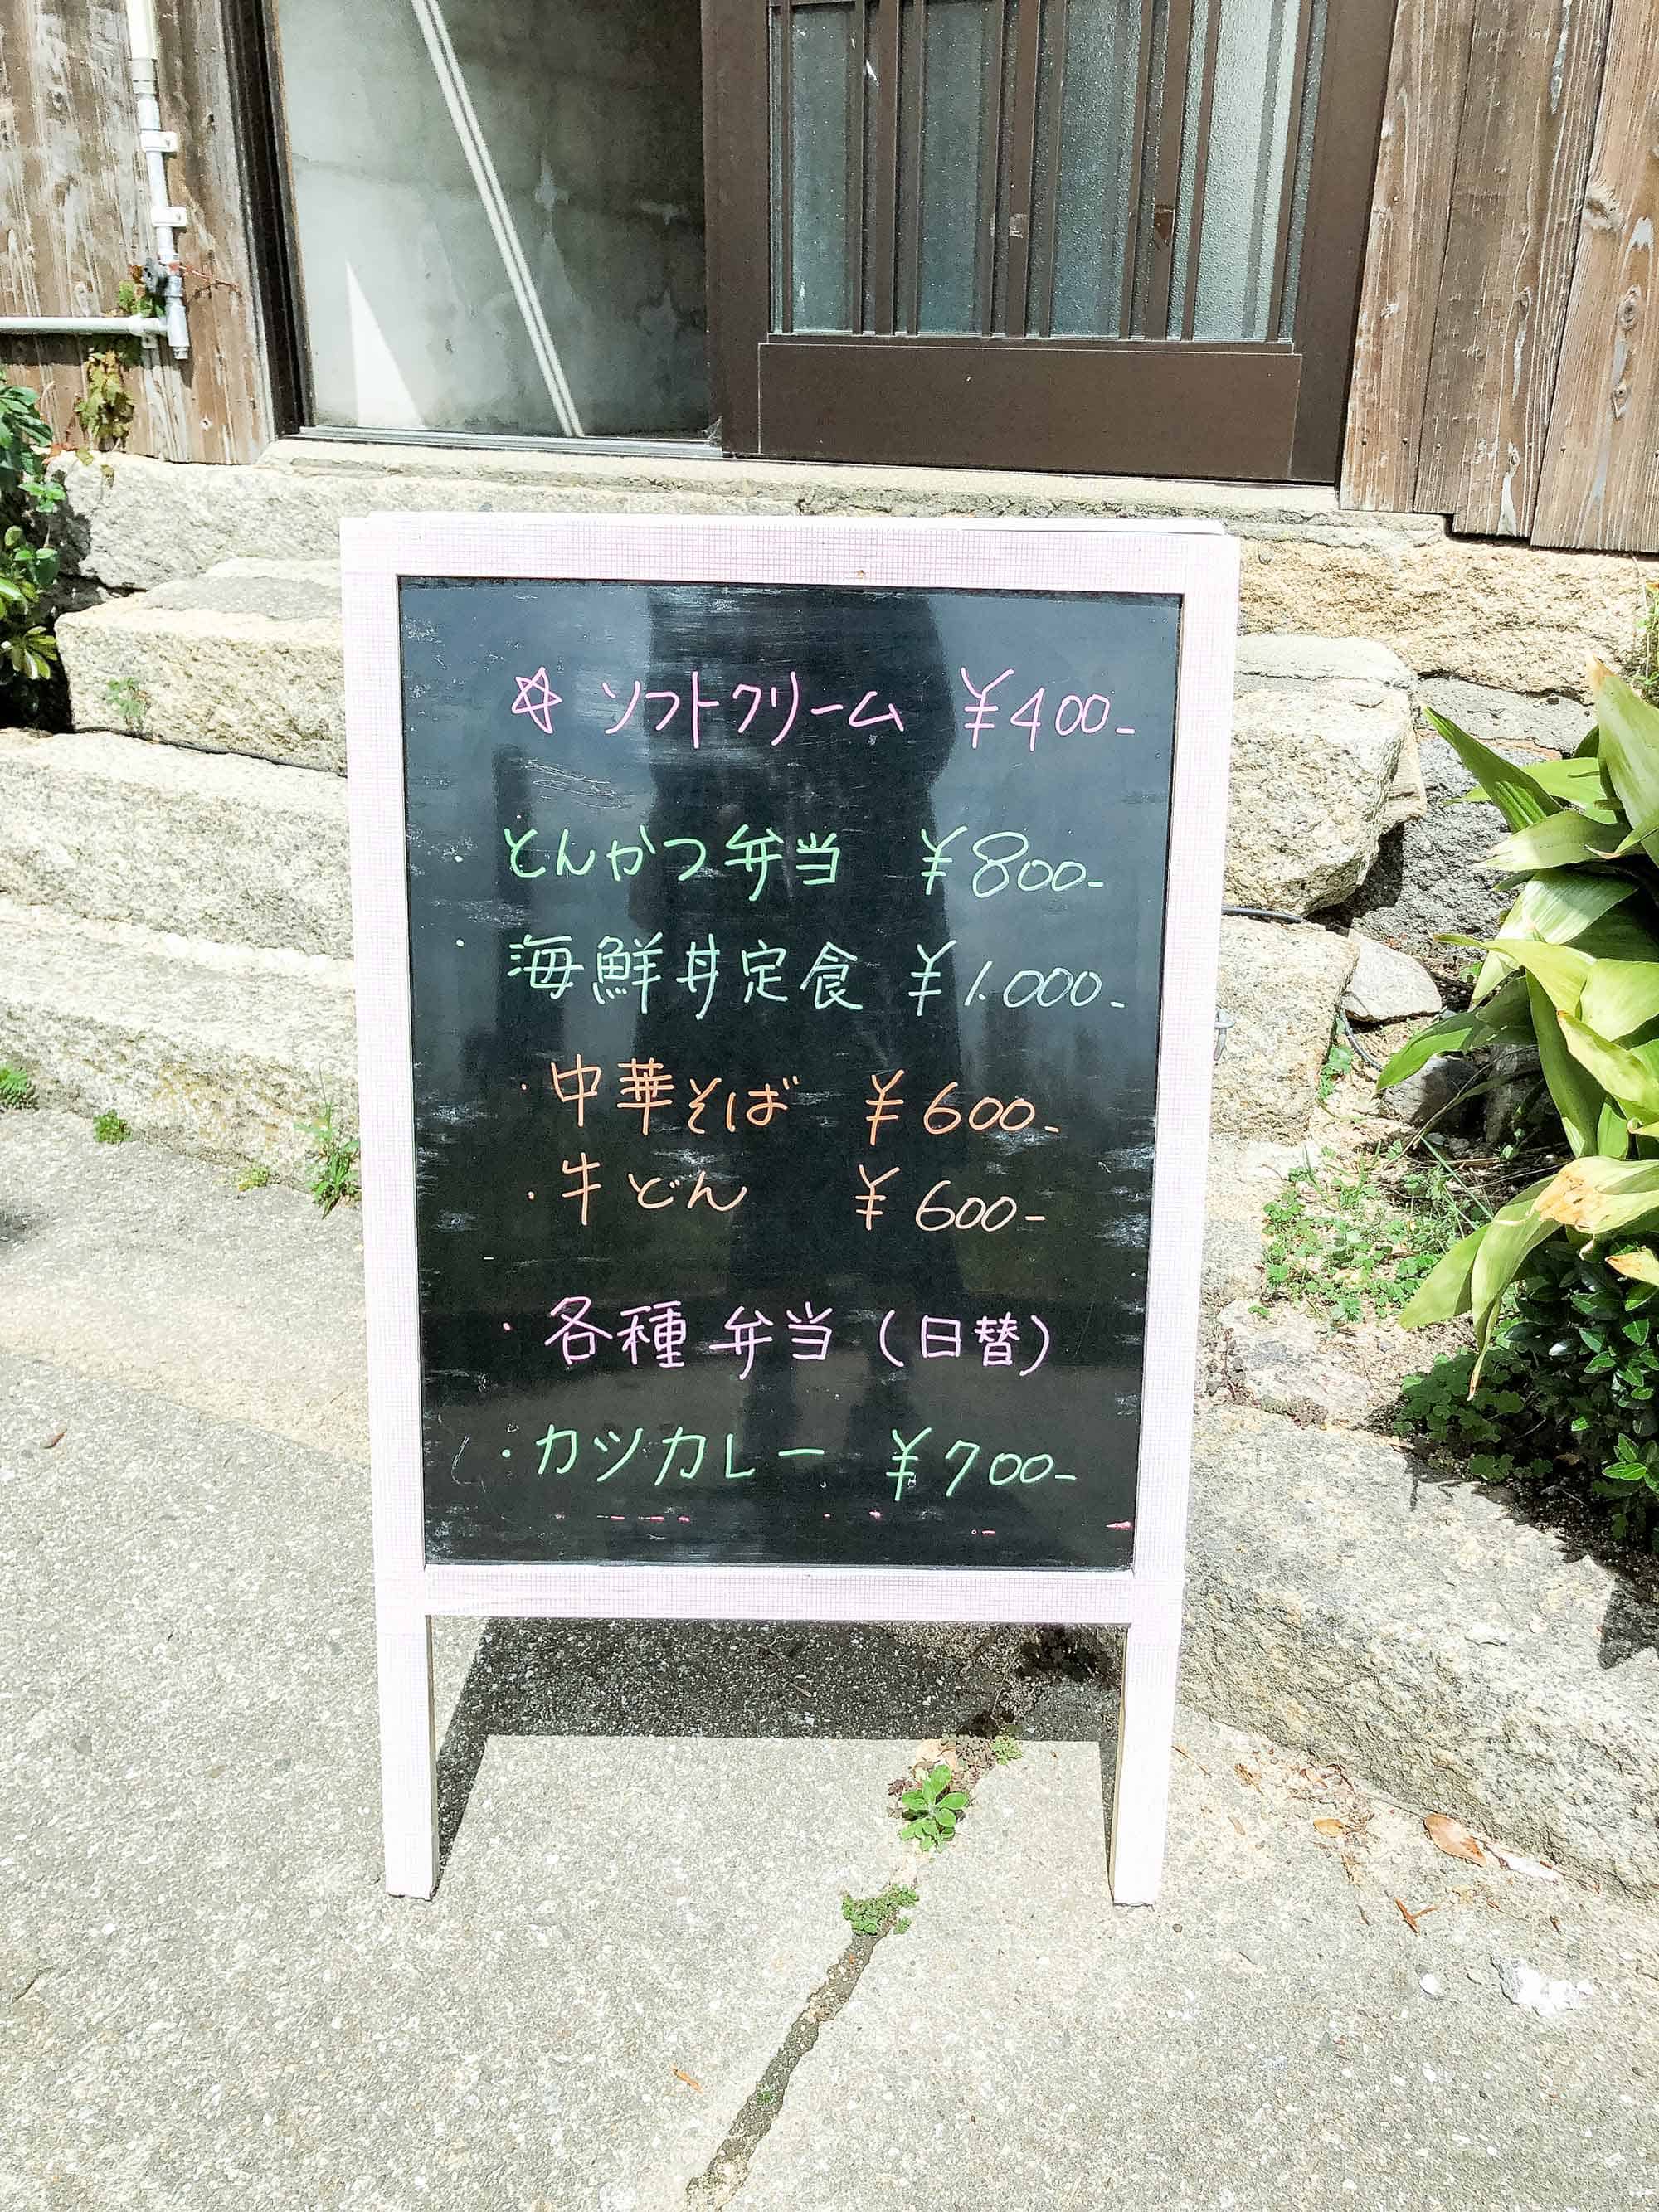 ☆ ソフトクリーム ¥400-
・とんかつ弁当 ¥800-
・海鮮丼定食 ¥1.000-
・中華そば ¥600-
・牛どん ¥600-
・各種弁当(日替)
・カツカレー ¥700-